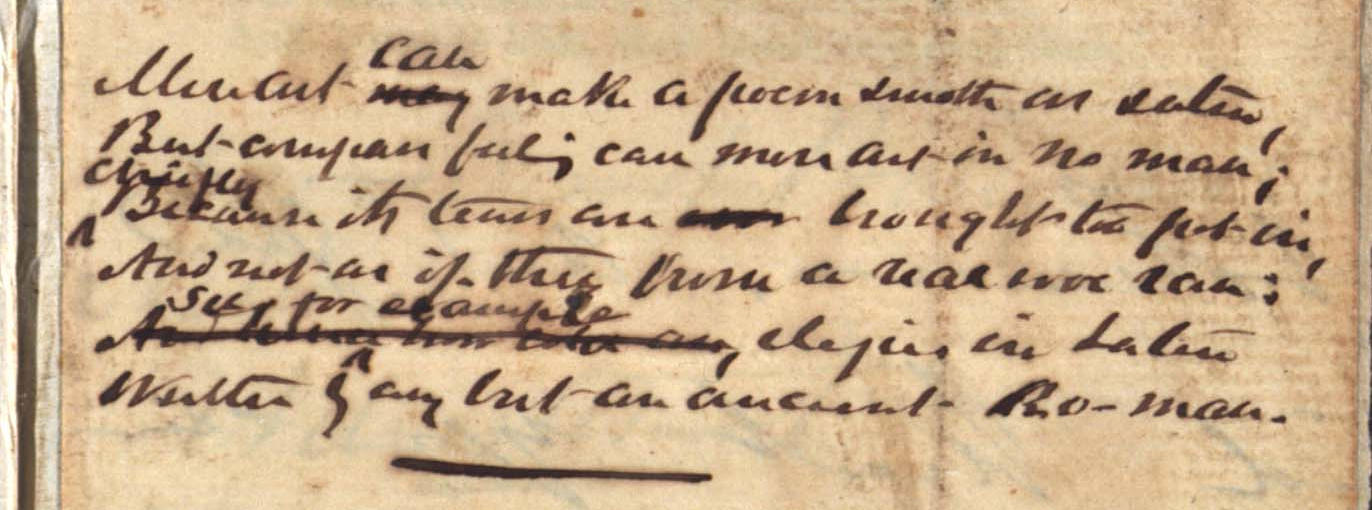 can
Mere art may make a poem smooth as satin,
But compass feeling can mere art in no man;
Chiefly
Because its tears are brought to put in,
And not as if they from a real woe ran:
See, for example
elegies in Latin
Written by any but an ancient Ro-man.